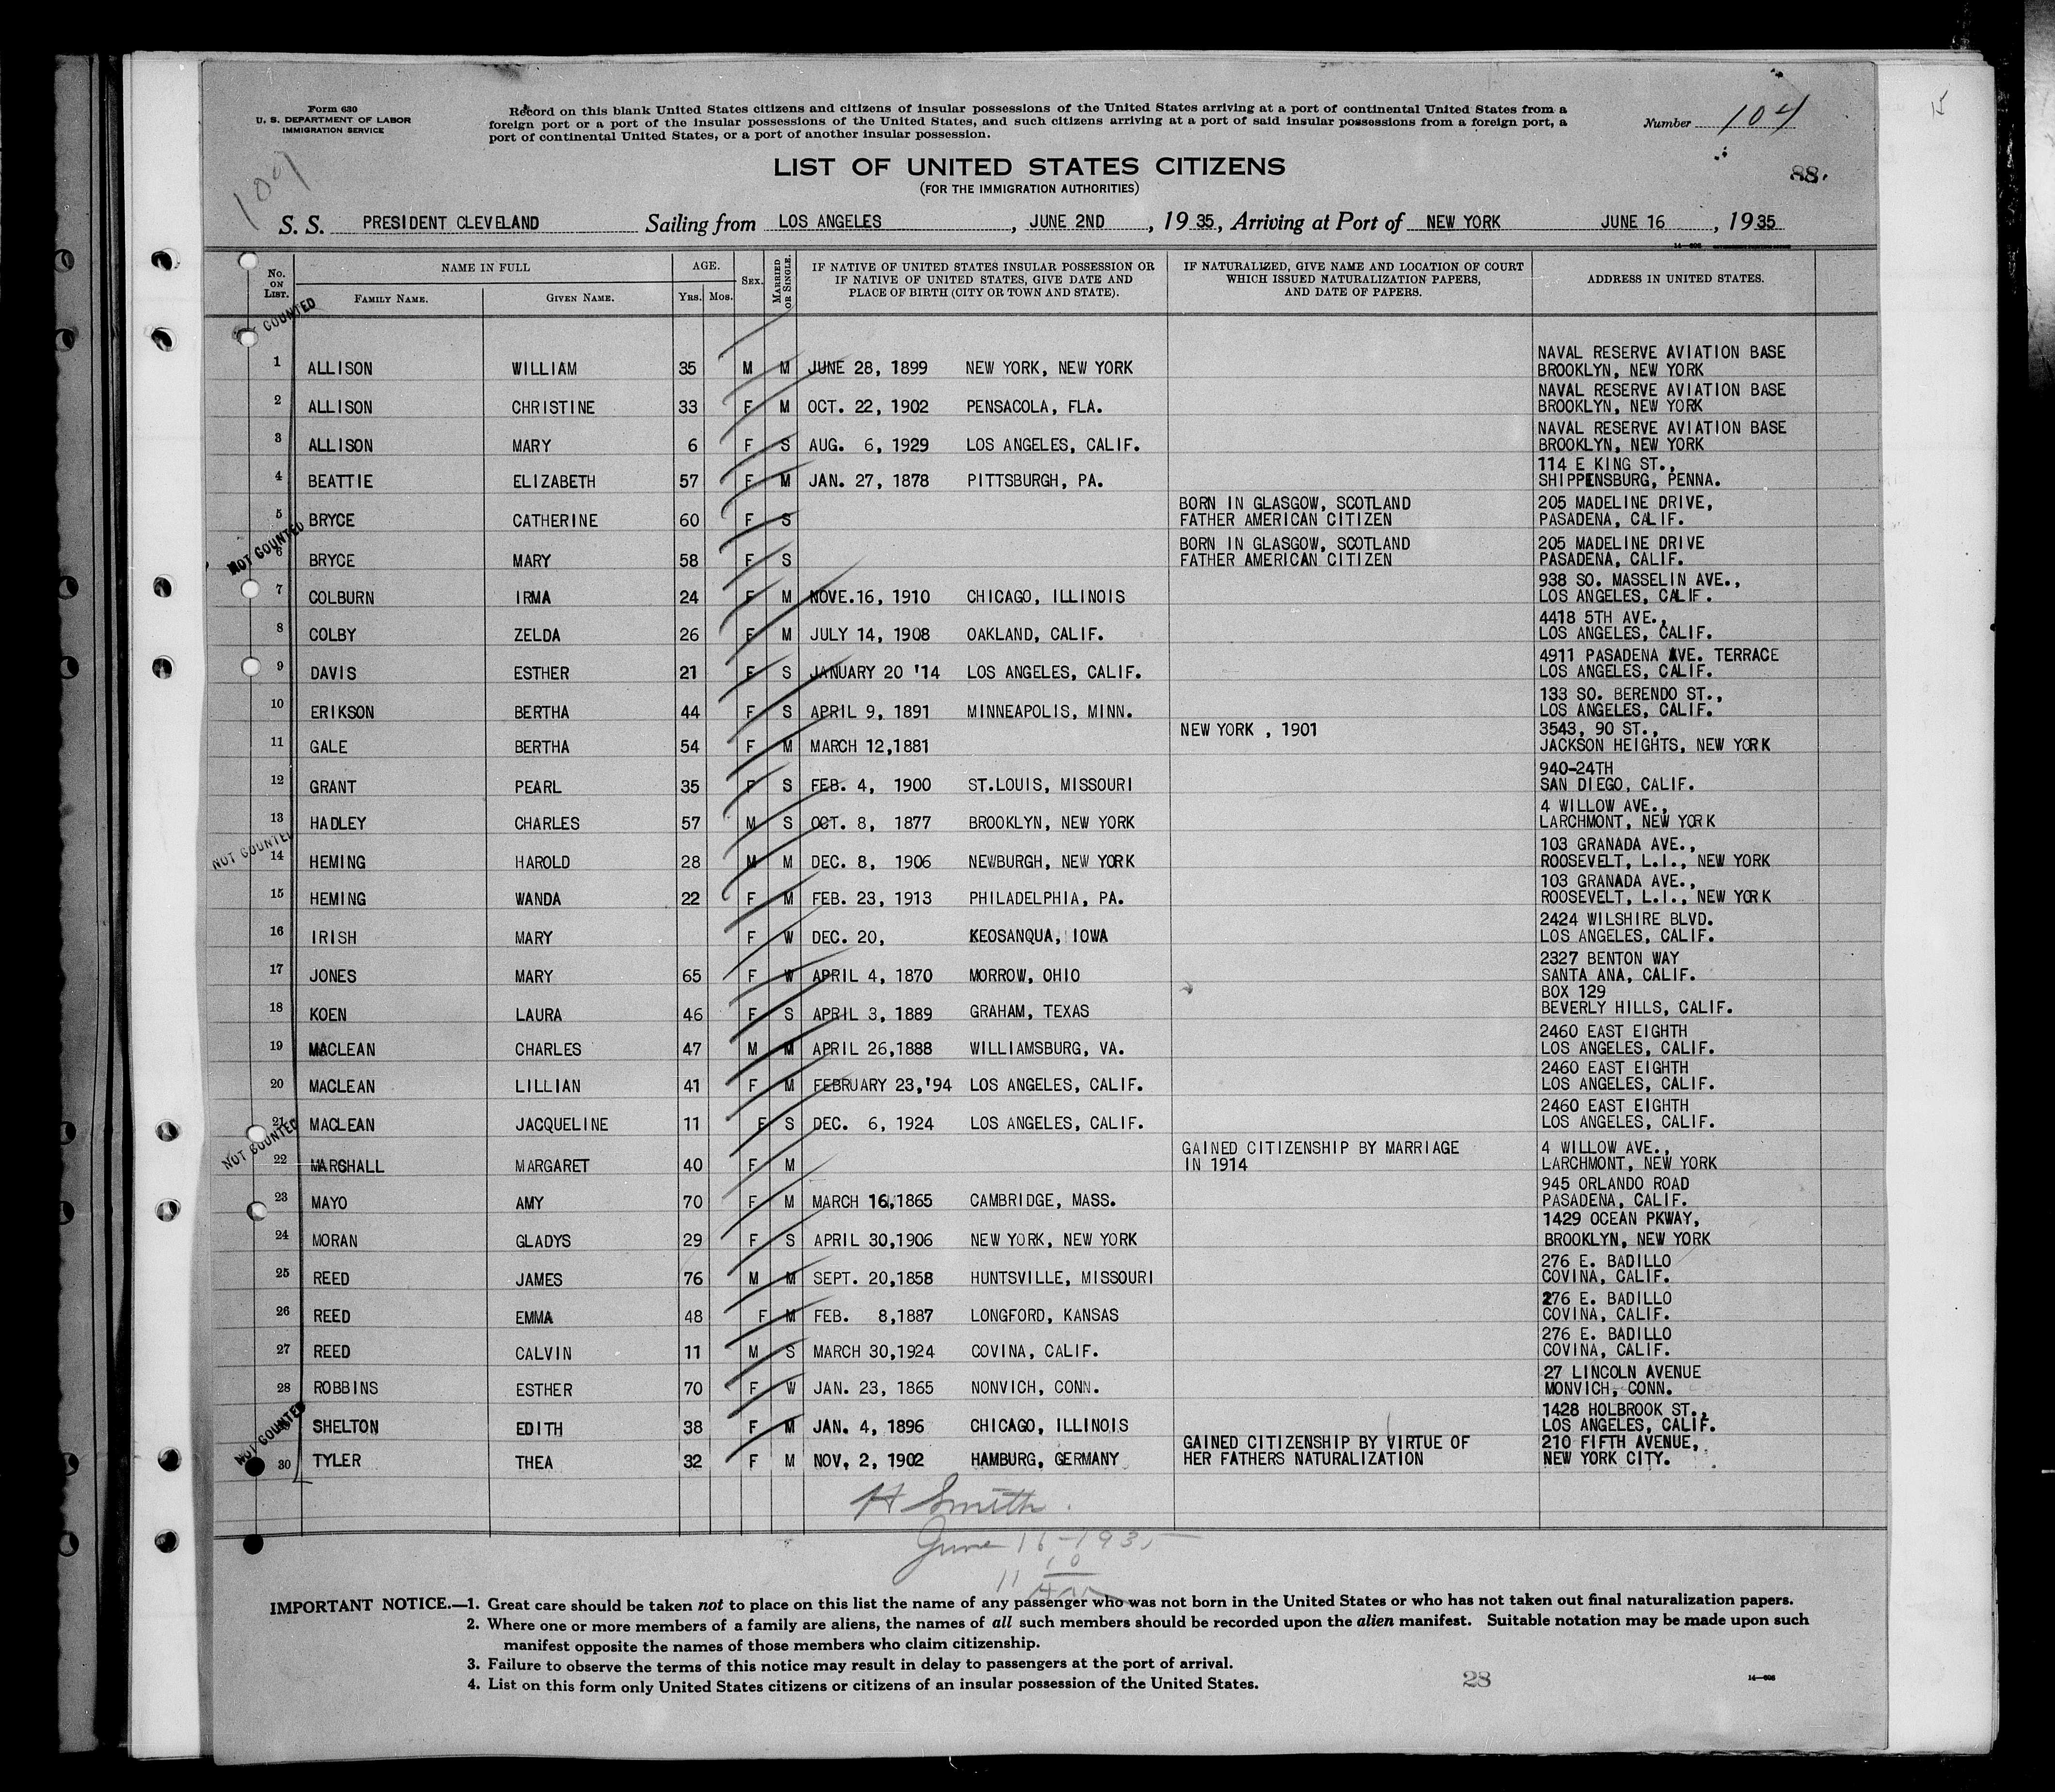 Form 630
U. S. DEPARTMENT OF LABOR
IMMIGRATION SERVICE
Record on this blank United States citizens and citizens of insular possessions of the United States arriving at a port of continental United States from a
foreign port or a port of the insular possessions of the United States, and such citizens arriving at a port of said insular possessions from a foreign port, a
port of continental United States, or a port of another insular possession.
Number 104
15
88.
LIST OF UNITED STATES CITIZENS
(FOR THE IMMIGRATION AUTHORITIES)
S. S. PRESIDENT CLEVELAND Sailing from LOS ANGELES, JUNE 2ND, 1935, Arriving at Port of NEW YORK JUNE 16, 1935
No. ON LIST. NAME IN FULL FAMILY NAME. GIVEN NAME. AGE. YRS. MOS. SEX. MARRIED OR SINGLE. IF NATIVE OF UNITED STATES INSULAR POSSESSION OR IF NATIVE OF UNITED STATES, GIVE DATE AND PLACE OF BIRTH (CITY OR TOWN AND STATE). IF NATURALIZED, GIVE NAME AND LOCATION OF COURT WHICH ISSUED NATURALIZATION PAPERS, AND DATE OF PAPERS. ADDRESS IN UNITED STATES.
COUNTED
1 ALLISON WILLIAM 35 M M JUNE 28, 1899 NEW YORK, NEW YORK NAVAL RESERVE AVIATION BASE BROOKLYN, NEW YORK
2 ALLISON CHRISTINE 33 F M OCT. 22, 1902 PENSACOLA, FLA. NAVAL RESERVE AVIATION BASE BROOKLYN, NEW YORK
3 ALLISON MARY 6 F S AUG. 6, 1929 LOS ANGELES, CALIF. NAVAL RESERVE AVIATION BASE BROOKLYN, NEW YORK
4 BEATTIE ELIZABETH 57 F M JAN. 27, 1878 PITTSBURGH, PA. 114 E KING ST., SHIPPENSBURG, PENNA.
5 BRYCE CATHERINE 60 F S BORN IN GLASGOW, SCOTLAND FATHER AMERICAN CITIZEN 205 MADELINE DRIVE, PASADENA, CALIF.
NOT COUNTED
6 BRYCE MARY 58 F S BORN IN GLASGOW, SCOTLAND FATHER AMERICAN CITIZEN 205 MADELINE DRIVE PASADENA, CALIF.
7 COLBURN IRMA 24 F M NOVE.16, 1910 CHICAGO, ILLINOIS 938 SO. MASSELIN AVE., LOS ANGELES, CALIF.
8 COLBY ZELDA 26 F M JULY 14, 1908 OAKLAND, CALIF. 4418 5TH AVE., LOS ANGELES, CALIF.
9 DAVIS ESTHER 21 F S JANUARY 20 '14 LOS ANGELES, CALIF. 4911 PASADENA AVE. TERRACE LOS ANGELES, CALIF.
10 ERIKSON BERTHA 44 F S APRIL 9, 1891 MINNEAPOLIS, MINN. 133 SO. BERENDO ST., LOS ANGELES, CALIF.
11 GALE BERTHA 54 F M MARCH 12,1881 NEW YORK , 1901 3543, 90 ST., JACKSON HEIGHTS, NEW YORK
12 GRANT PEARL 35 F S FEB. 4, 1900 ST.LOUIS, MISSOURI 940-24TH SAN DIEGO, CALIF.
13 HADLEY CHARLES 57 M S OCT. 8, 1877 BROOKLYN, NEW YORK 4 WILLOW AVE., LARCHMONT, NEW YORK
NOT COUNTED
14 HEMING HAROLD 28 M M DEC. 8, 1906 NEWBURGH, NEW YORK 103 GRANADA AVE., ROOSEVELT, L.I., NEW YORK
15 HEMING WANDA 22 F M FEB. 23, 1913 PHILADELPHIA, PA. 103 GRANADA AVE., ROOSEVELT, L.I., NEW YORK
16 IRISH MARY F W DEC. 20, KEOSANQUA, IOWA 2424 WILSHIRE BLVD. LOS ANGELES, CALIF.
17 JONES MARY 65 F W APRIL 4, 1870 MORROW, OHIO 2327 BENTON WAY SANTA ANA, CALIF.
18 KOEN LAURA 46 F S APRIL 3, 1889 GRAHAM, TEXAS BOX 129 BEVERLY HILLS, CALIF.
19 MACLEAN CHARLES 47 M M APRIL 26,1888 WILLIAMSBURG, VA. 2460 EAST EIGHTH LOS ANGELES, CALIF.
20 MACLEAN LILLIAN 41 F M FEBRUARY 23,'94 LOS ANGELES, CALIF. 2460 EAST EIGHTH LOS ANGELES, CALIF.
21 MACLEAN JACQUELINE 11 F S DEC. 6, 1924 LOS ANGELES, CALIF. 2460 EAST EIGHTH LOS ANGELES, CALIF.
NOT COUNTED
22 MARSHALL MARGARET 40 F M GAINED CITIZENSHIP BY MARRIAGE IN 1914 4 WILLOW AVE., LARCHMONT, NEW YORK
23 MAYO AMY 70 F M MARCH 16,1865 CAMBRIDGE, MASS. 945 ORLANDO ROAD PASADENA, CALIF.
24 MORAN GLADYS 29 F S APRIL 30,1906 NEW YORK, NEW YORK 1429 OCEAN PKWAY, BROOKLYN, NEW YORK
25 REED JAMES 76 M M SEPT. 20,1858 HUNTSVILLE, MISSOURI 276 E. BADILLO COVINA, CALIF.
26 REED EMMA 48 F M FEB. 8,1887 LONGFORD, KANSAS 276 E. BADILLO COVINA, CALIF.
27 REED CALVIN 11 M S MARCH 30,1924 COVINA, CALIF. 276 E. BADILLO COVINA, CALIF.
28 ROBBINS ESTHER 70 F W JAN. 23, 1865 NONVICH, CONN. 27 LINCOLN AVENUE MONVICH, CONN.
NOT COUNTED
SHELTON EDITH 38 F M JAN. 4, 1896 CHICAGO, ILLINOIS 1428 HOLBROOK ST., LOS ANGELES, CALIF.
30 TYLER THEA 32 F M NOV, 2, 1902 HAMBURG, GERMANY GAINED CITIZENSHIP BY VIRTUE OF HER FATHERS NATURALIZATION 210 FIFTH AVENUE, NEW YORK CITY.
H Smith.
June 16-193
IMPORTANT NOTICE.—1. Great care should be taken not to place on this list the name of any passenger who was not born in the United States or who has not taken out final naturalization papers.
2. Where one or more members of a family are aliens, the names of all such members should be recorded upon the alien manifest. Suitable notation may be made upon such
manifest opposite the names of those members who claim citizenship.
3. Failure to observe the terms of this notice may result in delay to passengers at the port of arrival.
4. List on this form only United States citizens or citizens of an insular possession of the United States.
28